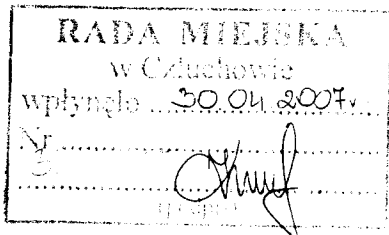 RADA MIEJSKA
w Człuchowie
wpłynęło 30.04.2007r.
Nr